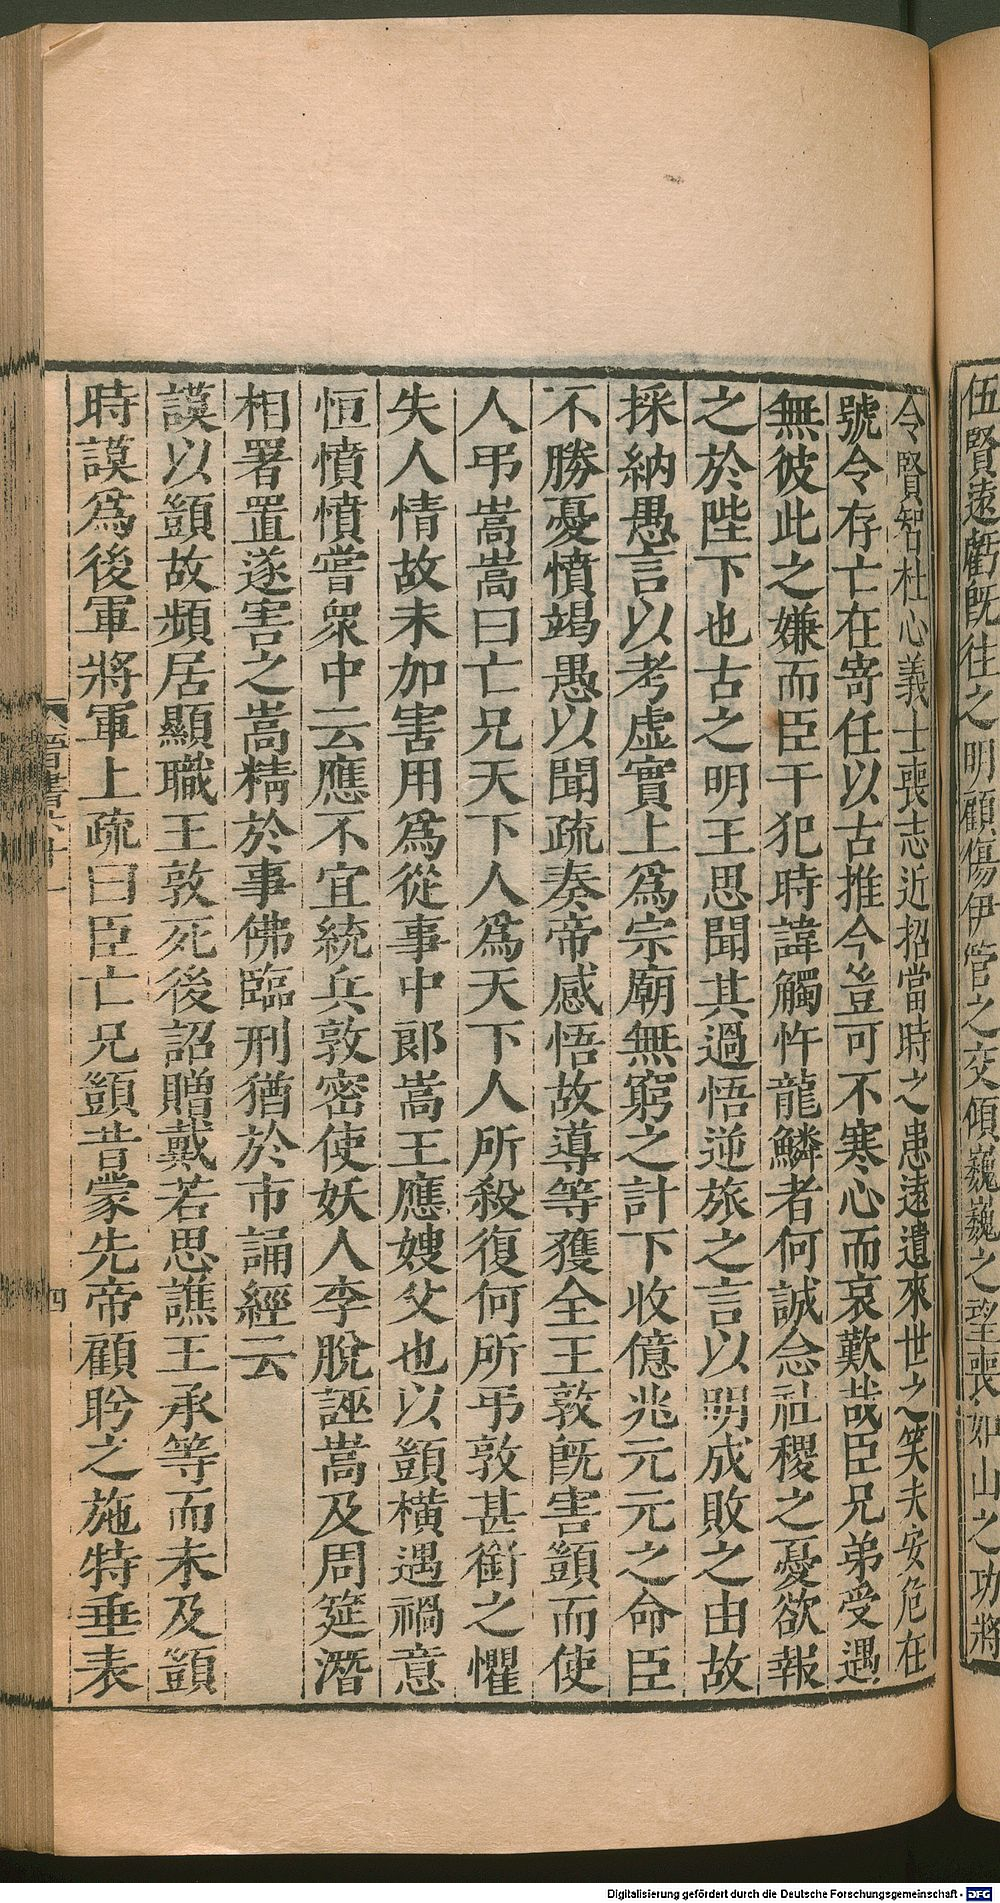 伍賢遠虧既往之明顧傷伊管之交傾巍巍之望喪如山之功將
令賢智杜心義士喪志近招當時之患遠遺來世之笑夫安危在
號令存亡在寄任以古推今豈可不寒心而哀歎哉臣兄弟受遇
無彼此之嫌而臣干犯時諱觸忤龍鱗者何誠念社稷之憂欲報
之於陛下也古之明王思聞其過悟逆旅之言以明成敗之由故
採納愚言以考虛實上爲宗廟無窮之計下收億兆元元之命臣
不勝憂憤竭愚以聞疏奏帝感悟故導等獲全王敦既害顗而使
人弔嵩嵩曰亡兄天下人爲天下人所殺復何所弔敦甚銜之懼
失人情故未加害用爲從事中郎嵩王應嫂父也以顗橫遇禍意
恒憤憤嘗衆中云應不宜統兵敦密使妖人李脫誣嵩及周筵潛
相署置遂害之嵩精於事佛臨刑猶於市誦經云
謨以顗故頻居顯職王敦死後詔贈戴若思譙王承等而未及顗
時謨爲後軍將軍上疏曰臣亡兄顗昔蒙先帝顧眄之施特垂表
四
Digitalisierung gefördert durch die Deutsche Forschungsgemeinschaft - DFG